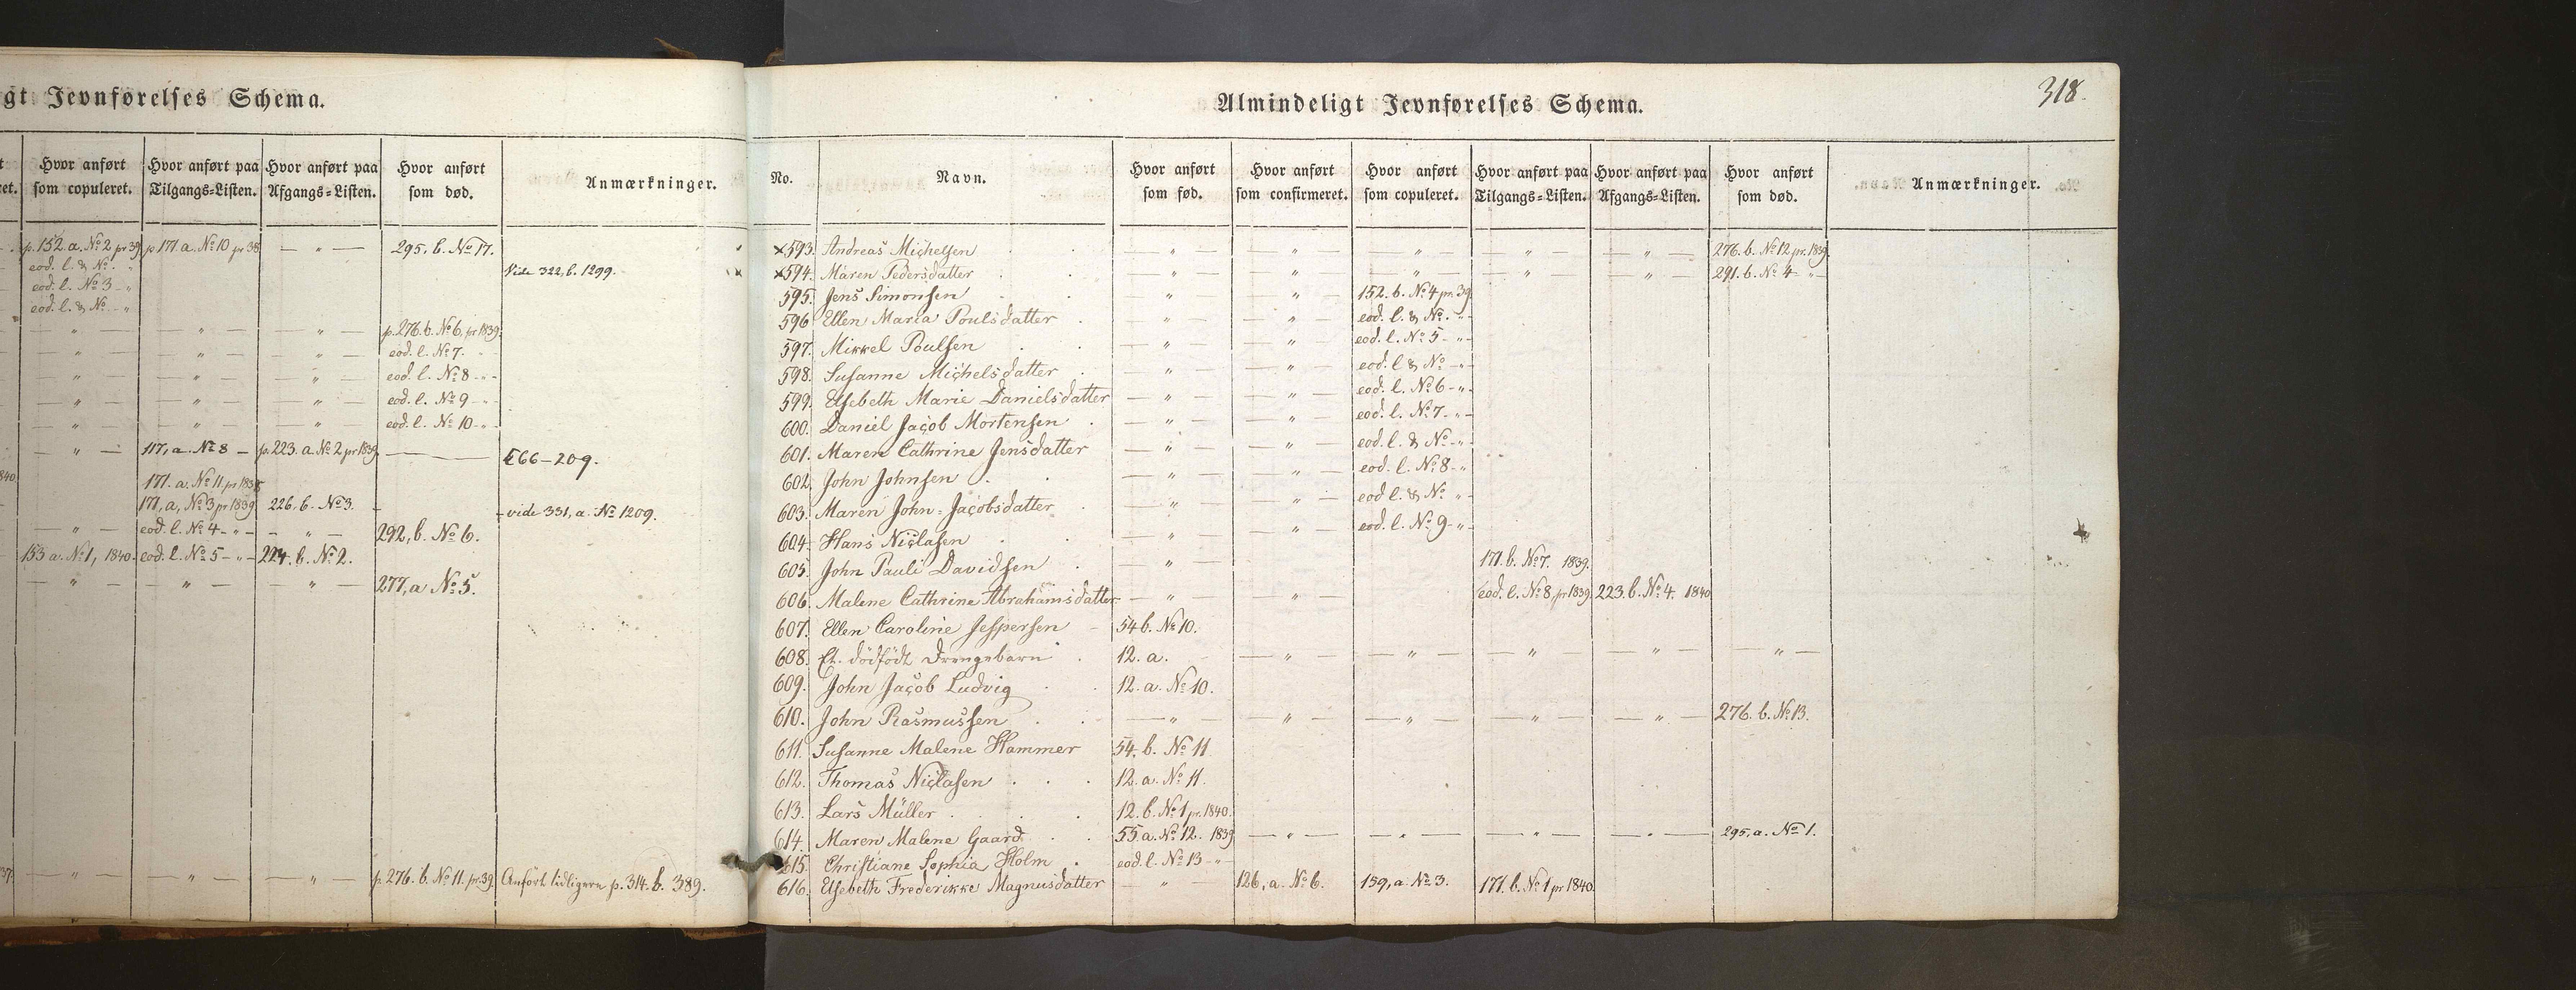 gt Jevnførelses Schema.
et. Hvor anført som copuleret. Hvor anført paa Tilgangs-Listen. Hvor anført paa Afgangs-Listen. Hvor anført som død. Anmærkninger.
p. 152. a. No 2 pr 39. p 171 a. No 10 pr 38 — " — 295, b. No 17.
eod. l. & No. " Vide 322, b. 1299.
eod. l. No 3 - "
eod. l. & No - "
— " — — " — — " — p. 276. b. No 6, pr 1839.
— " — — " — — " — eod. l. No 7. - " -
— " — — " — — " — eod. l. No 8 - " -
— " — — " — — " — eod. l. No 9 - " -
— " — — " — — " — eod. l. No 10 - " -
— " — 117, a. No 8 — p. 223. a. No 2 pr 1839. — 66 - 209.
840 171. a. No 11, pr 1838
171, a, No 3 pr 1839 226, b. No 3. - vide 331, a. No 1209.
— " — eod. l. No 4 - " - - " - 292, b. No 6.
153 a. No 1, 1840. eod. l. No 5 - " - 224. b. No 2.
— " — — " — — " — 277, a No 5.
37. — " — — " — — " — p. 276. b. No 11. pr. 39. Anført tidligere p. 314. b. 389.
318.
Almindeligt Jevnførelses Schema.
No. Navn. Hvor anført som fød. Hvor anført som confirmeret. Hvor anført som copuleret. Hvor anført paa Tilgangs-Listen. Hvor anført paa Afgangs-Listen. Hvor anført som død. Anmærkninger.
x593. Andreas Michelsen — " — " — " — " — " — 276. b. No 12 pr. 1839.
x594. Maren Pedersdatter — " — " — " — " — " — 291. b. No 4 - " -
595. Jens Simonsen — " — " — 152. b. No 4 pr. 39.
596 Ellen Maria Poulsdatter — " — " — eod. l. & No. - " -
597. Mikkel Poulsen — " — " — eod. l. No 5 - " -
598. Susanne Michelsdatter — " — " — eod. l & No - " -
599. Elsebeth Marie Danielsdatter — " — " — eod. l. No 6 - " -
600. Daniel Jacob Mortensen — " — " — eod. l. No 7. - " -
601. Maren Cathrine Jensdatter — " — " — eod. l. & No - " -
602. John Johnsen — " — " — eod. l. No 8 - "
603. Maren John-Jacobsdatter — " — " — eod l. & No - " -
604. Hans Niclasen — " — " — eod. l. No 9 - " -
605. John Pauli Davidsen — " — 171. b. No 7. 1839.
606. Malene Cathrine Abrahamsdatter — " — " — eod. l. No 8, pr 1839 223. b. No 4. 1840
607. Ellen Caroline Jespersen — 54 b. No 10.
608. Et dödfödt Drengebarn 12. a. — " — " — " — " — " —
609. John Jacob Ludvig 12. a. No 10.
610. John Rasmussen — " — " — " — " — " — 276. b. No 13.
611. Susanne Malene Hammer 54. b. No 11
612. Thomas Niclasen 12. a. No 11.
613. Lars Müller 12. b. No 1 pr. 1840.
614. Maren Malene Gaard 55 a. No 12. 1839 — " — " — " — " — 295, a. No 1.
615. Christiane Sophia Holm eod. l. No 13 - " -
616. Elsebeth Frederikke Magnusdatter — " — 126, a. No 6. 159, a. No 3. 171. b. No 1 pr 1840.